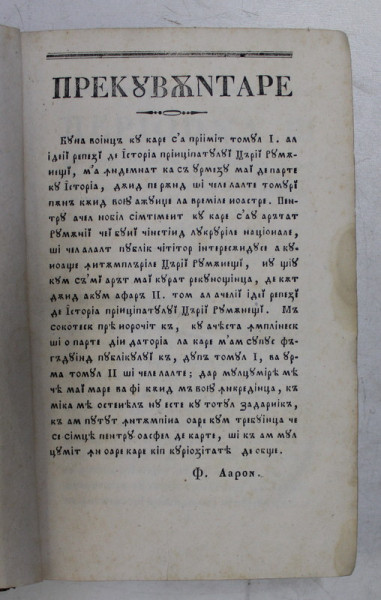 ПРЕКꙊВѪNТАРЕ
Бꙋна воінцъ кꙋ каре с'а пріімит томꙋл I. ал
ідеїі репезї де їсторіа прінціпатꙋлꙋї Църїі Рꙋмѫ-
нещї, м'а ꙟдемнат ка съ ꙋрмезꙋ маї де парте
кꙋ їсторіа, джнд пе ржнд ші челе лалте томꙋрї
пѫнъ кѫнд воіꙋ ажꙋнџе ла времіле ноастре. Пен-
трꙋ ачел нобіл сімтімент кꙋ каре с'аꙋ арътат
Рꙋмѫнії чеї бꙋнї чінстінд лꙋкрꙋріле націонале,
ші чел алалт пꙋблік чітітор інтересꙋідꙋсе а кꙋ-
ноаще ꙟтѫмплъріле Църїі Рꙋмѫнещї, нꙋ щіꙋ
кꙋм съ'мї арът маї кꙋрат рекꙋнощінца, де кѫт
джнд акꙋм афаръ II. том ал ачелїі ідеї репезї
де їсторіа прінціпатꙋлꙋї Църїі Рꙋмѫнещї. Мъ
сокотеск прѐ норочіт къ, кꙋ ачѣста ꙟмплінеск
ші о парте дін даторіа ла каре м'ам сꙋпꙋс фъ-
гъдꙋінд пꙋблікꙋлꙋї къ, дꙋпъ томꙋл I, ва ꙋр-
ма томꙋл II ші челе лалте; дар мꙋлцꙋмірѣ мѣ
чѣ маї маре ва фі кѫнд мъ воіꙋ ꙟкредінца, къ
міка мѣ остенѣлъ нꙋ есте кꙋ тотꙋл задарнікъ,
къ ам пꙋтꙋт ꙟтѫмпіна оаре кꙋм требꙋінца че
се сімце пентрꙋ оасфел де карте, ші къ ам мꙋл
цꙋміт ꙟн оаре каре кіп кꙋріозітатѣ де обще.
Ф. Аарон.